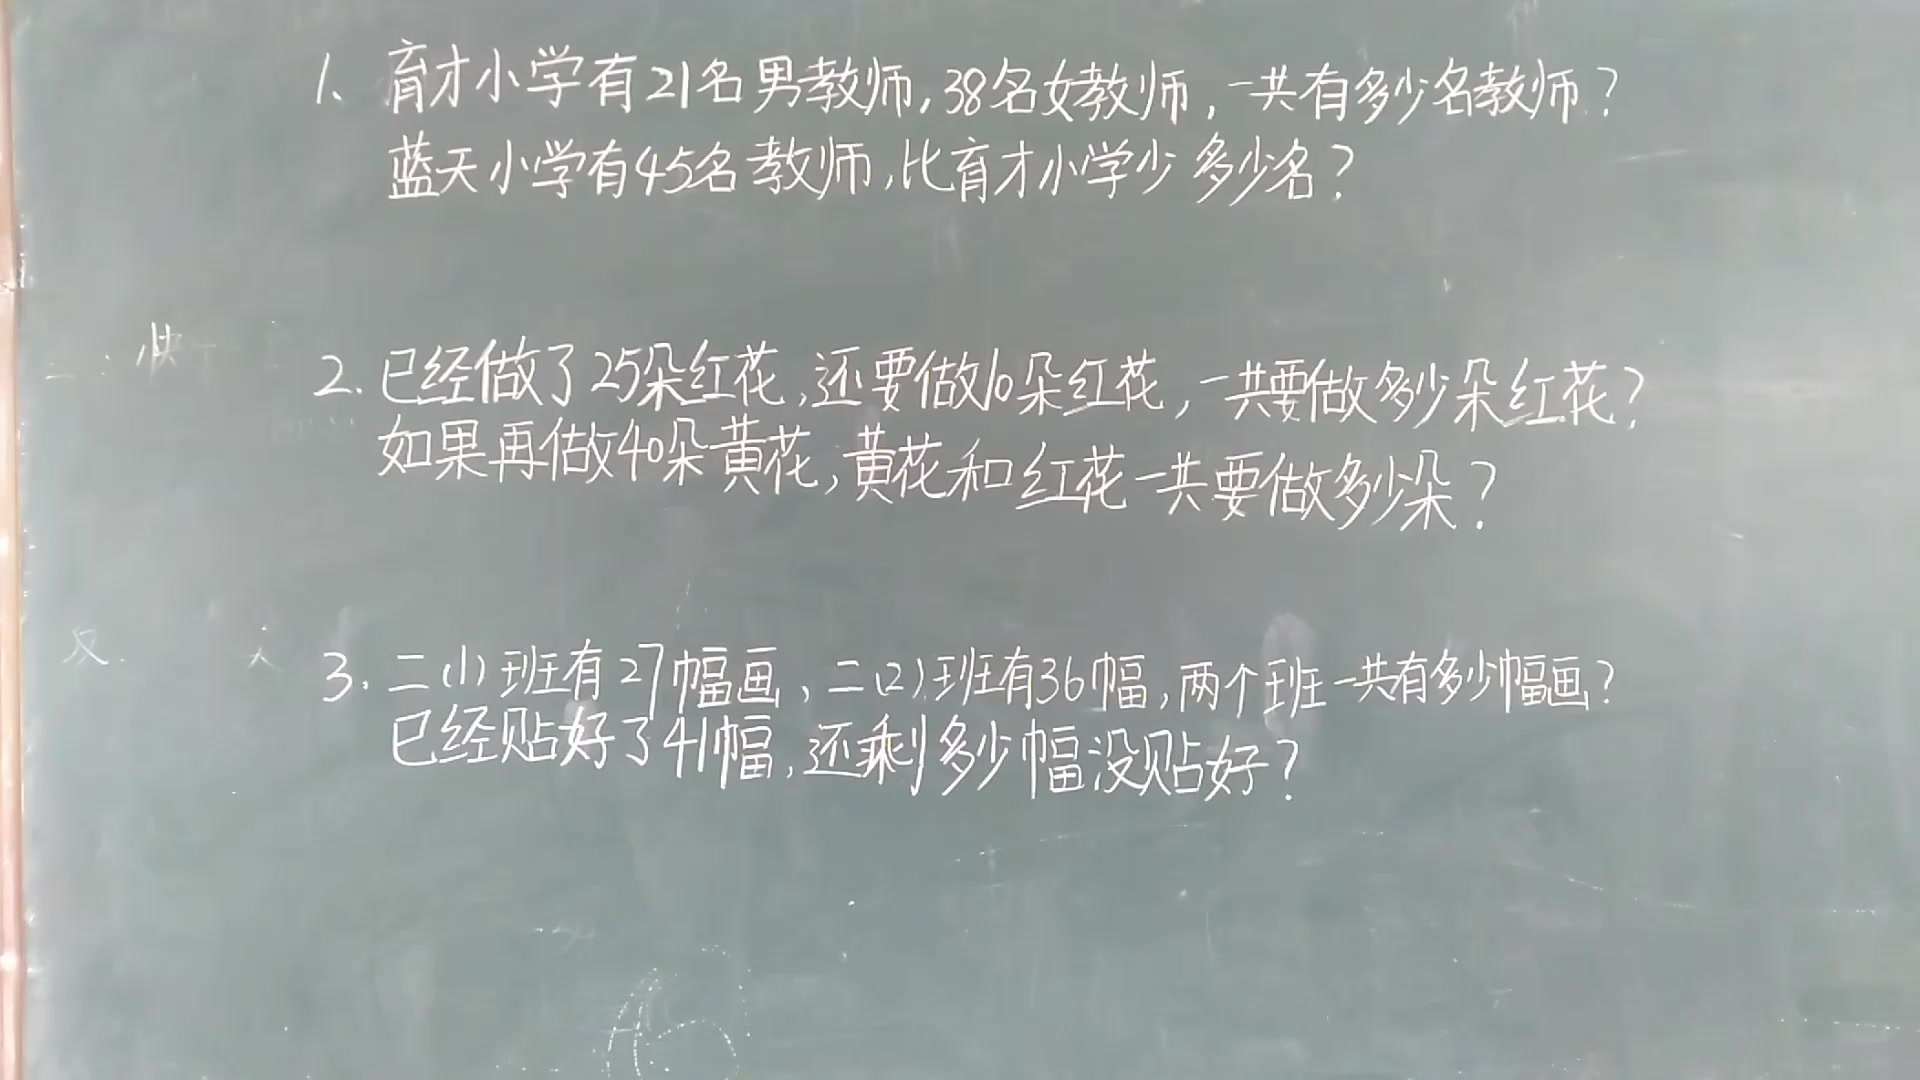 1、育才小学有21名男教师,38名女教师,一共有多少名教师?
蓝天小学有45名教师,比育才小学少多少名?
2.已经做了25朵红花,还要做10朵红花,一共要做多少朵红花?
如果再做40朵黄花,黄花和红花一共要做多少朵?
3.二(1)班有27幅画,二(2)班有36幅,两个班一共有多少幅画?
已经贴好了41幅,还剩多少幅没贴好?